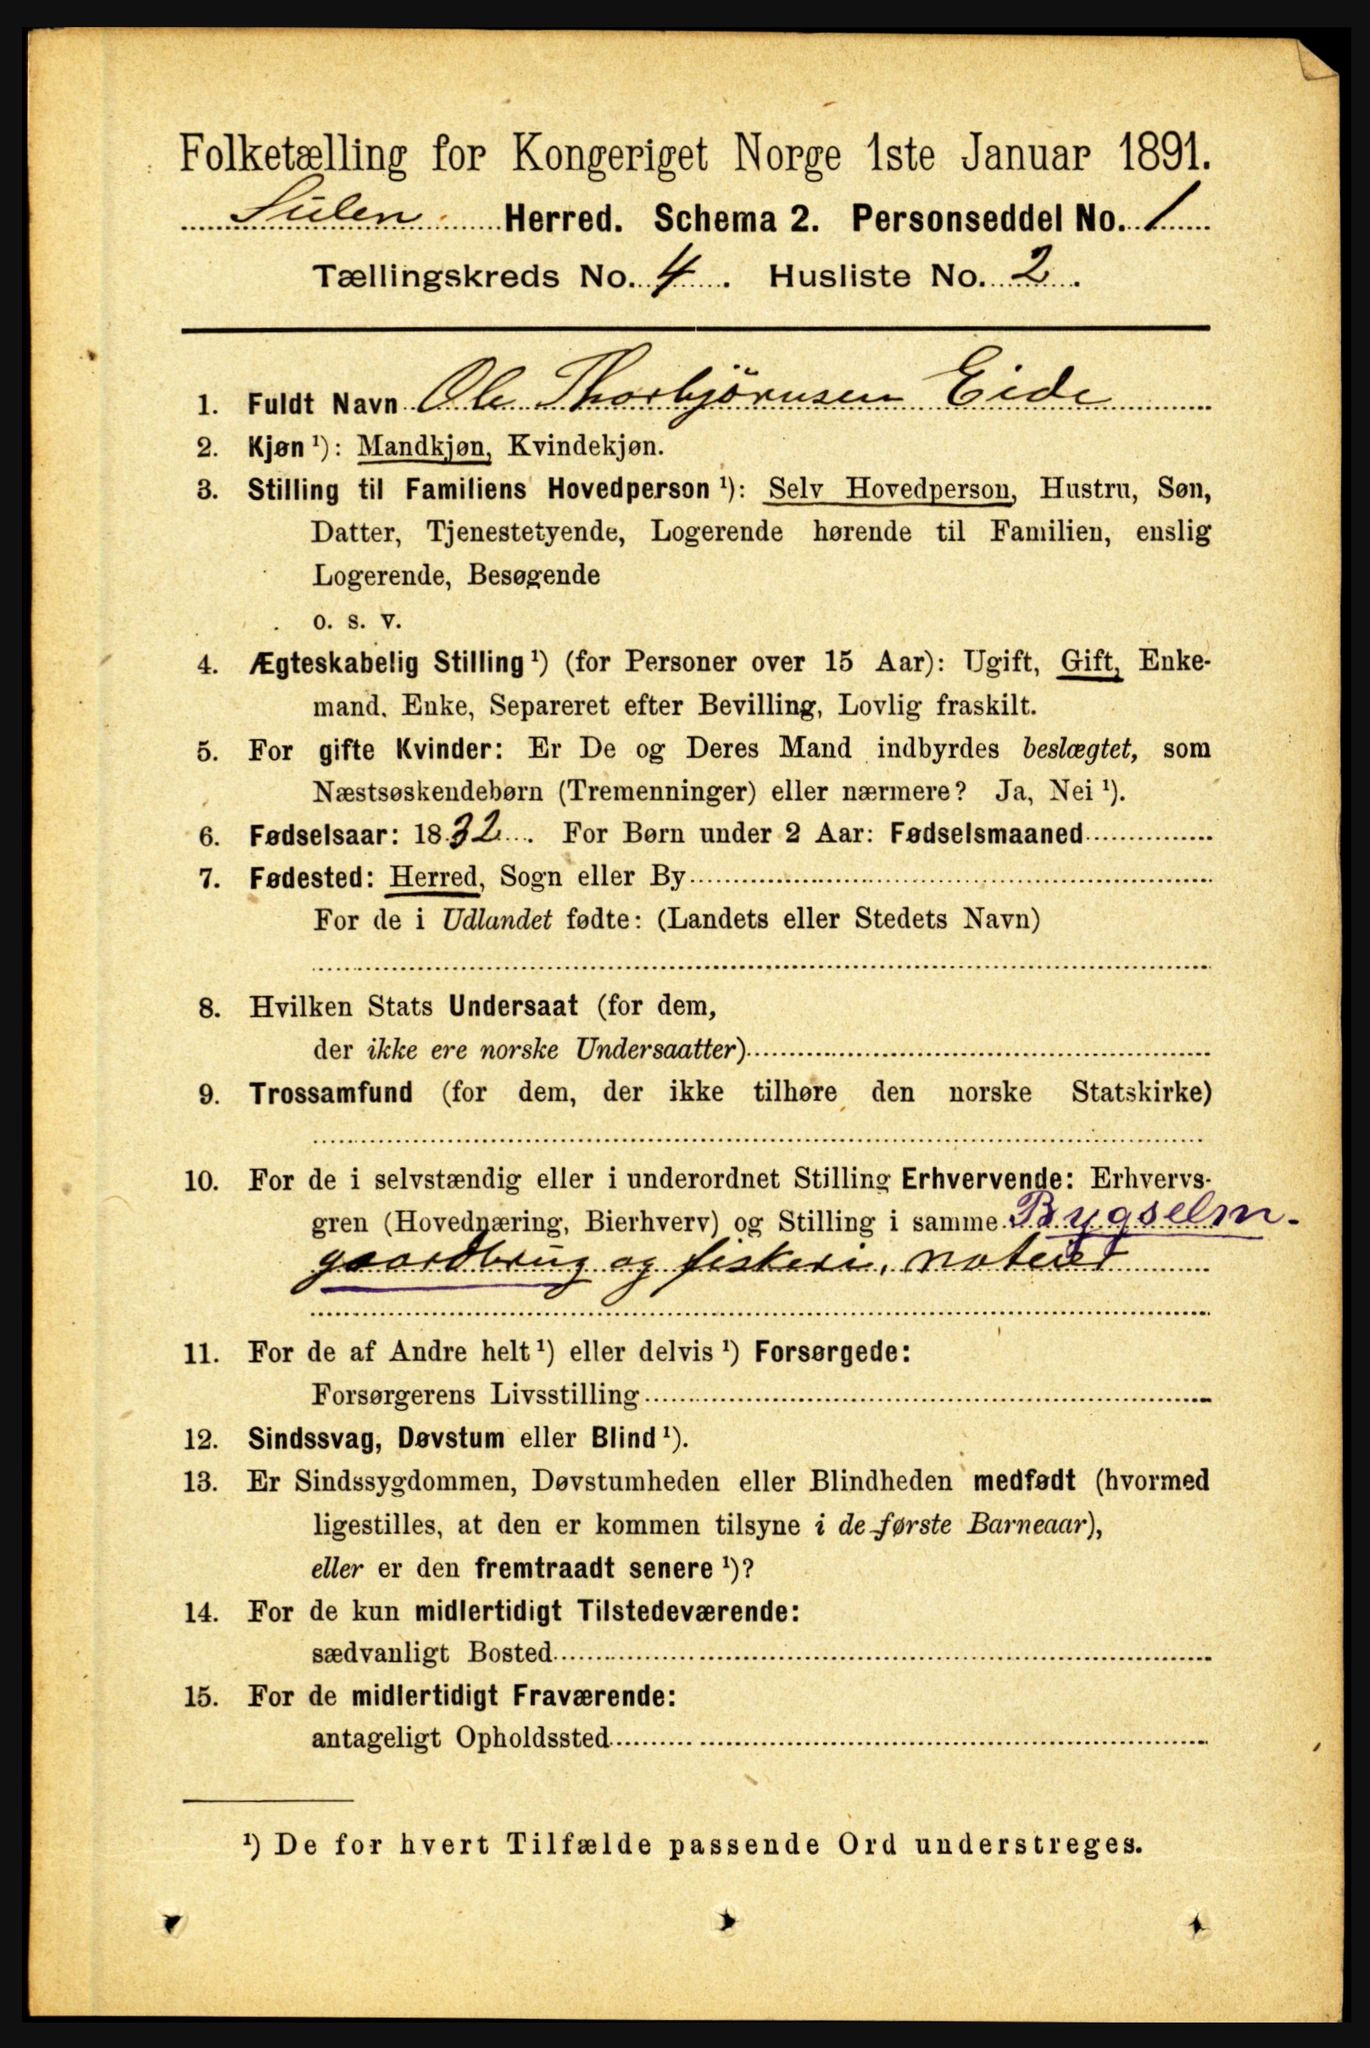 Folketælling for Kongeriget Norge 1ste Januar 1891.
Sulen Herred. Schema 2. Personseddel No. 1
Tællingskreds No. 4. Husliste No. 2.
1. Fuldt Navn Ole Thorbjörnsen Eide
2. Kjøn ¹): Mandkjøn, Kvindekjøn.
3. Stilling til Familiens Hovedperson ¹): Selv Hovedperson, Hustru, Søn,
Datter, Tjenestetyende, Logerende hørende til Familien, enslig
Logerende, Besøgende
o. s. v.
4. Ægteskabelig Stilling ¹) (for Personer over 15 Aar): Ugift, Gift, Enke-
mand, Enke, Separeret efter Bevilling, Lovlig fraskilt.
5. For gifte Kvinder: Er De og Deres Mand indbyrdes beslægtet, som
Næstsøskendebørn (Tremenninger) eller nærmere? Ja, Nei ¹).
6. Fødselsaar: 1832. For Børn under 2 Aar: Fødselsmaaned
7. Fødested: Herred, Sogn eller By
For de i Udlandet fødte: (Landets eller Stedets Navn)
8. Hvilken Stats Undersaat (for dem,
der ikke ere norske Undersaatter)
9. Trossamfund (for dem, der ikke tilhøre den norske Statskirke)
10. For de i selvstændig eller i underordnet Stilling Erhvervende: Erhvervs-
gren (Hovednæring, Bierhverv) og Stilling i samme Bygselm.
gaardbrug og fiskeri, noteier
11. For de af Andre helt ¹) eller delvis ¹) Forsørgede:
Forsørgerens Livsstilling
12. Sindssvag, Døvstum eller Blind ¹).
13. Er Sindssygdommen, Døvstumheden eller Blindheden medfødt (hvormed
ligestilles, at den er kommen tilsyne i de første Barneaar),
eller er den fremtraadt senere ¹)?
14. For de kun midlertidigt Tilstedeværende:
sædvanligt Bosted
15. For de midlertidigt Fraværende:
antageligt Opholdssted
¹) De for hvert Tilfælde passende Ord understreges.